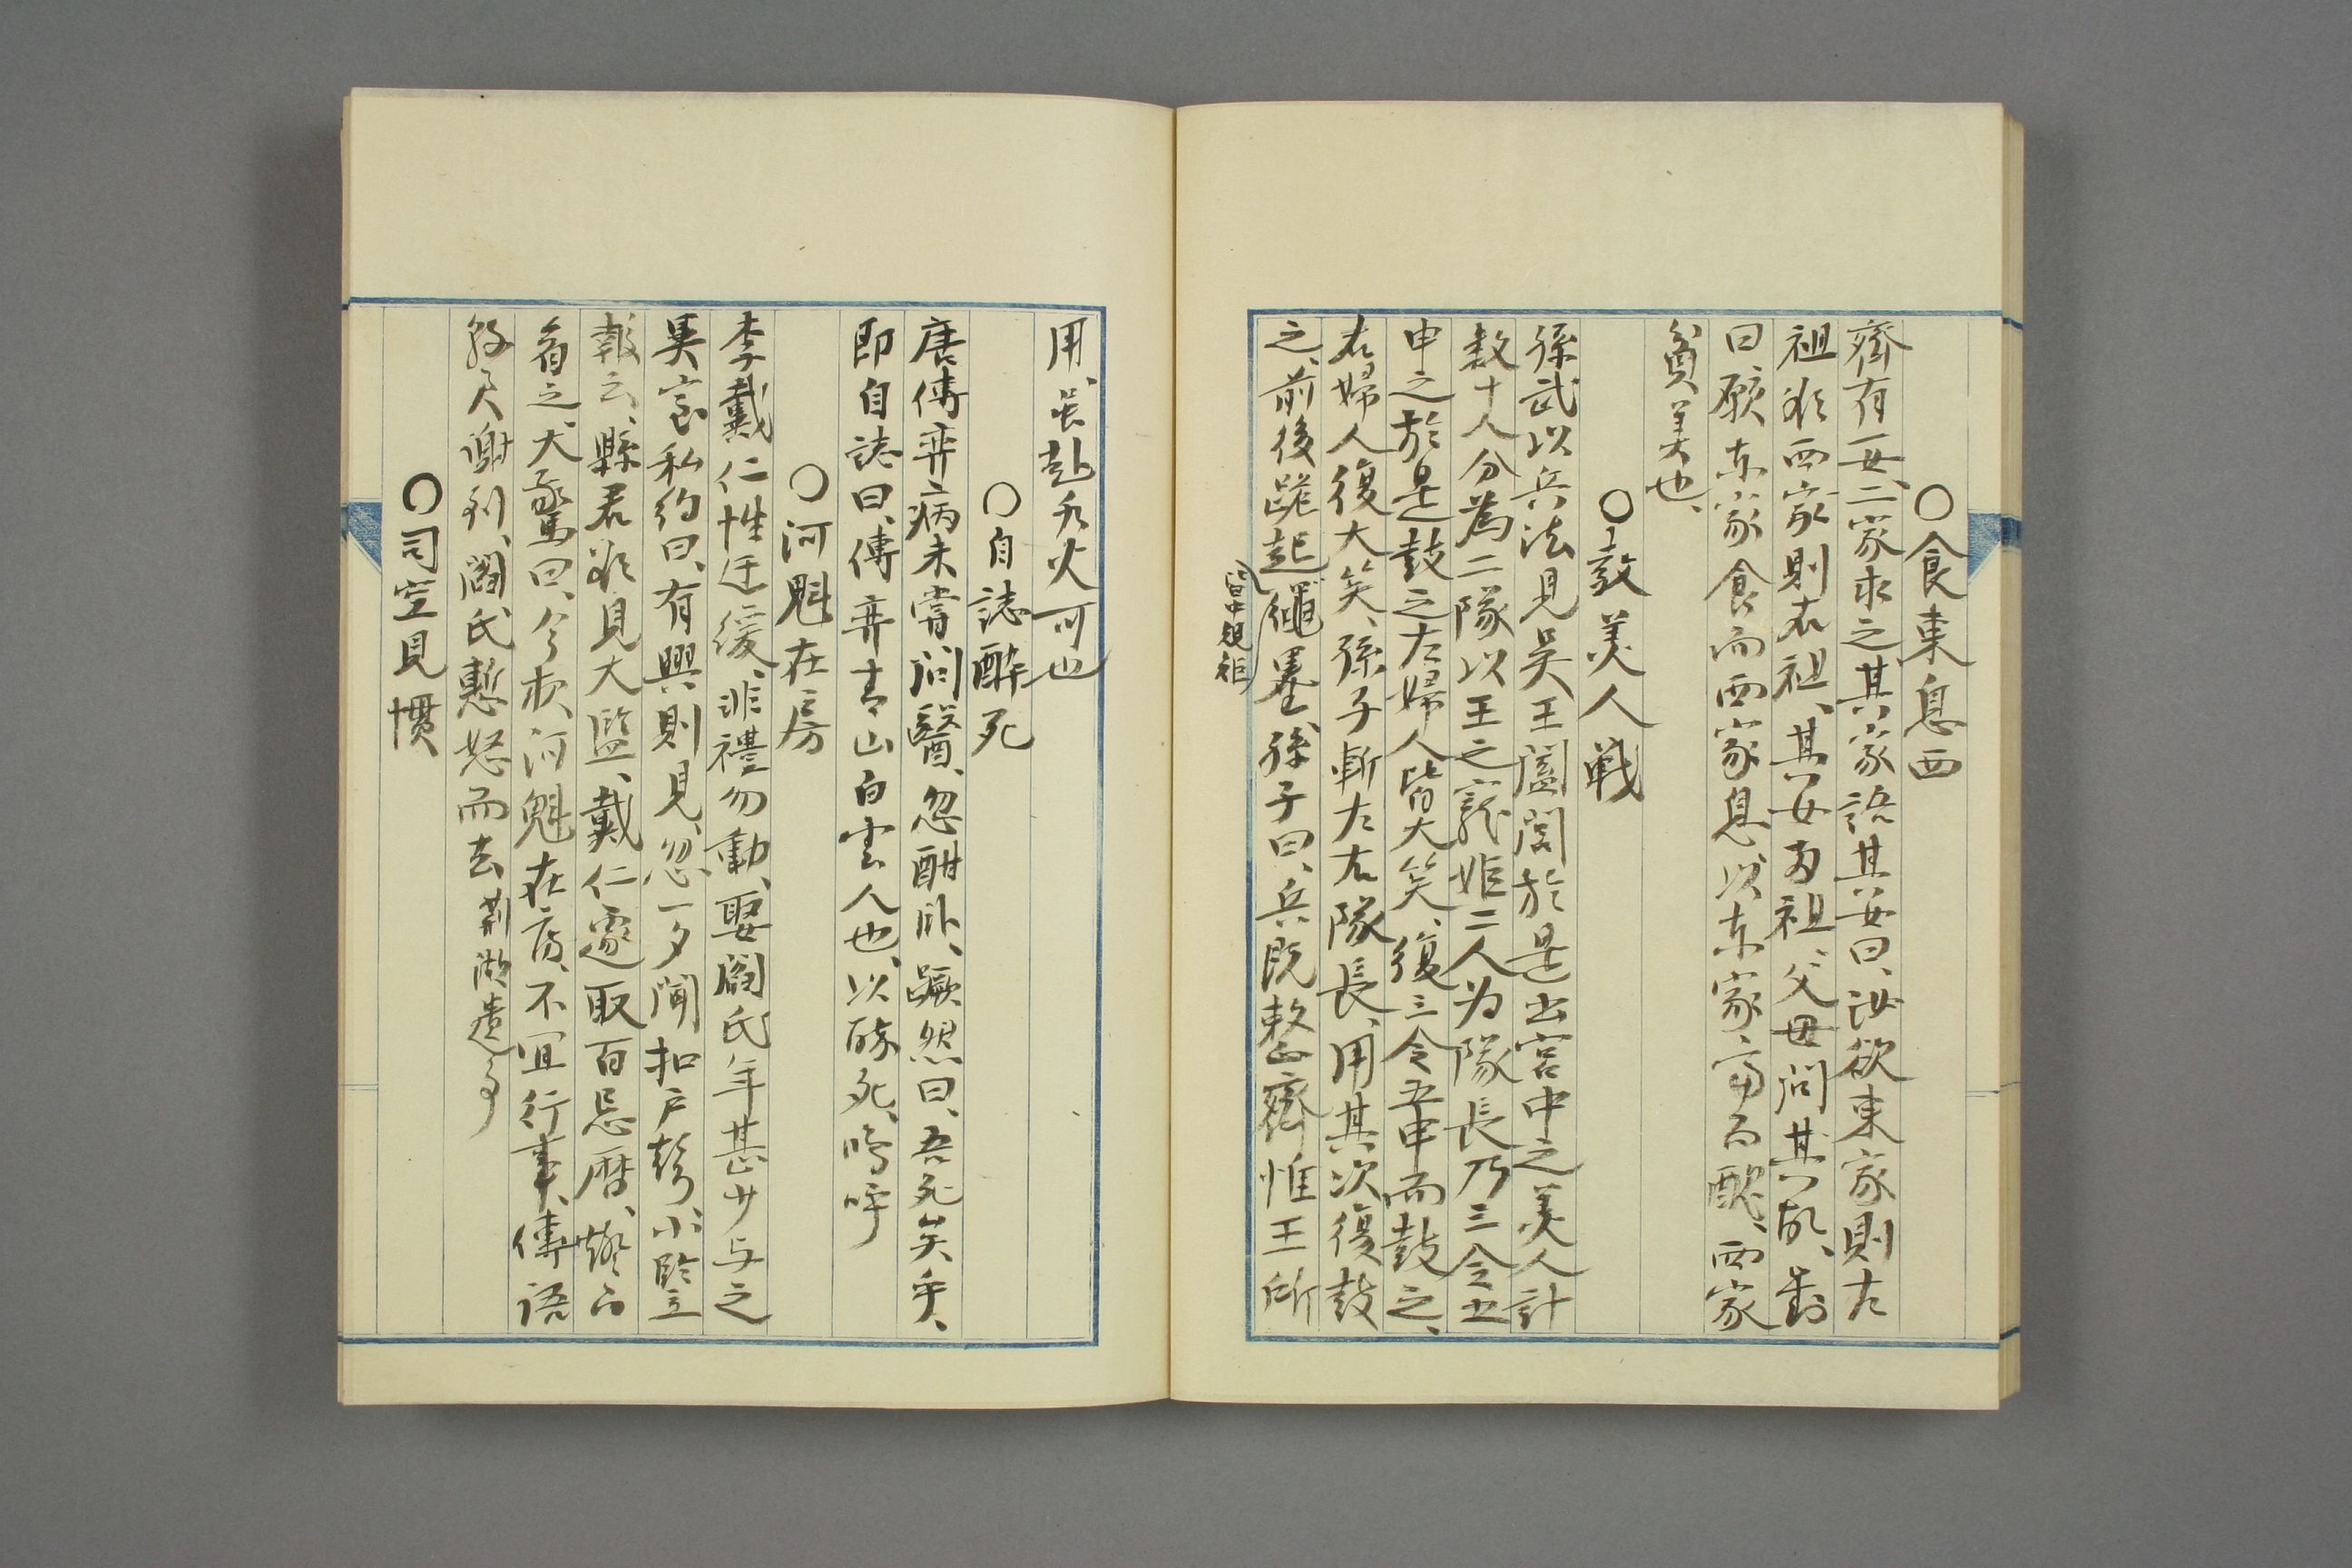 ○食東息西
齊有一女、二家求之、其家語其女曰、汝欲東家則左
袒、欲西家則右袒、其女两袒、父母问其故、對
曰、願东家食而西家息、以东家富而醜、西家
貧美也、
○教美人戰
孫武以兵法見吴王闔閭於是出宮中之美人計
数十人分為二隊以王之寵姫二人为隊長乃三令五
申之於是鼓之左婦人皆大笑、復三令五申而鼓之、
右婦人復大笑、孫子斬左右隊長、用其次復鼓
之、前後跪起繩墨、孫子曰、兵既整齊惟王所
皆中規矩
用、虽赴水火可也
○自誌醉死
唐傅弈病未嘗问醫、忽酣卧、蹶然曰、吾死矣乎、
即自誌曰、傅弈青山白雲人也、以醉死、嗚呼
○河魁在房
李戴仁性迂緩、非禮勿動、娶閻氏年甚少与之
異室私約曰、有興則見、忽一夕聞扣户聲、小豎立
報云、縣君欲見大監、戴仁遽取百忌暦、燈下
看之、大驚曰、今夜河魁在房、不宜行事、傳語
縣君謝到、閻氏慙怒而去 荆湖遺事
○司空見慣